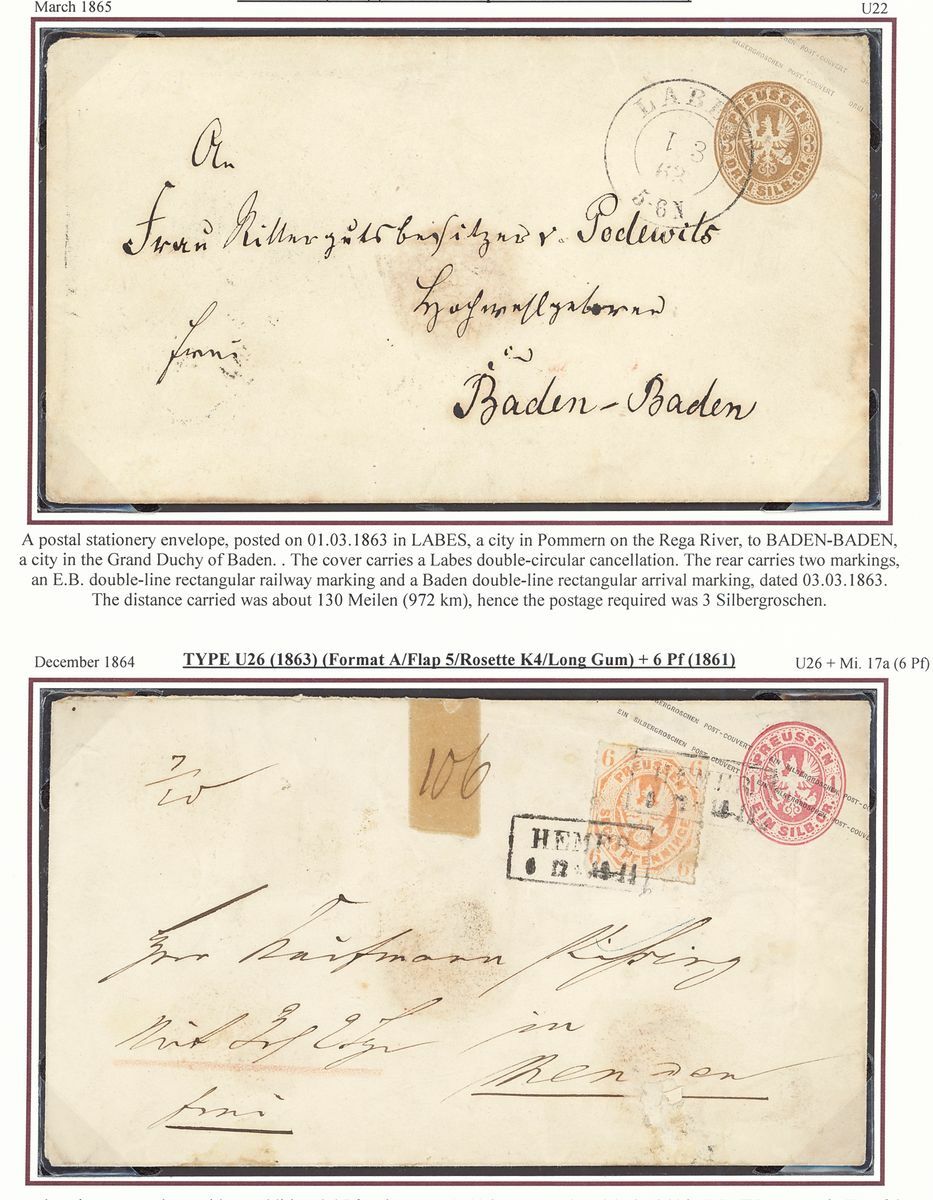 March 1865
U22
SILBERGROSCHEN POST-COUVERT
SILBERGROSCHEN POST-COUVERT DREI
PREUSSEN
3 3
DREI SILB. GR.
LABE
1 3
63
5-6 N
An
Frau Rittergutsbesitzer v. Podewils
Hochwohlgeboren
in
Baden-Baden
frei
A postal stationery envelope, posted on 01.03.1863 in LABES, a city in Pommern on the Rega River, to BADEN-BADEN,
a city in the Grand Duchy of Baden. . The cover carries a Labes double-circular cancellation. The rear carries two markings,
an E.B. double-line rectangular railway marking and a Baden double-line rectangular arrival marking, dated 03.03.1863.
The distance carried was about 130 Meilen (972 km), hence the postage required was 3 Silbergroschen.
December 1864
TYPE U26 (1863) (Format A/Flap 5/Rosette K4/Long Gum) + 6 Pf (1861)
U26 + Mi. 17a (6 Pf)
SILBERGROSCHEN POST-COUVERT EIN SILBERGROSCHEN POST-CO
EIN SILBERGROSCHEN POST-COUVERT EIN SILBERGROSCHEN POST-COUVERT
PREUSSEN
1
EIN SILB. GR.
6
PREUSSEN
PFENNINGE
6
HEMER
6 12
HEMER
6 12
106
Herr Kaufmann
in
Menden
frei